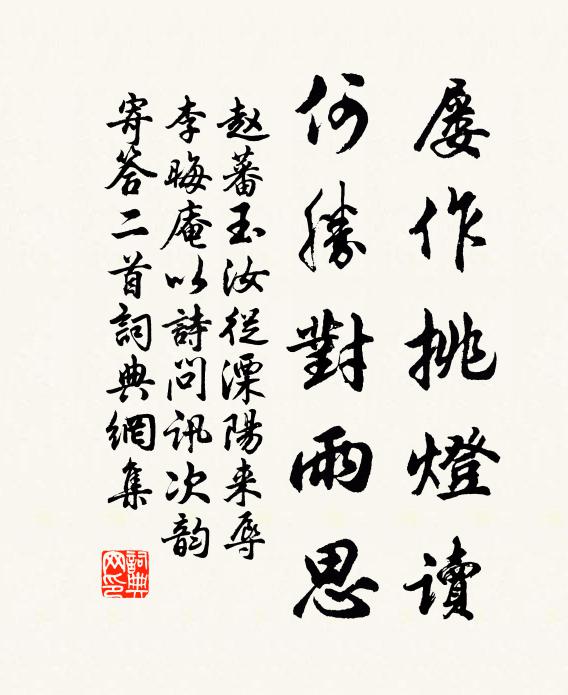 屡作挑燈讀
何勝對雨思
赵蕃玉汝從溧陽来辱
李晦庵以詩問訊次韵
寄答二首詞典網集
詞典
网印